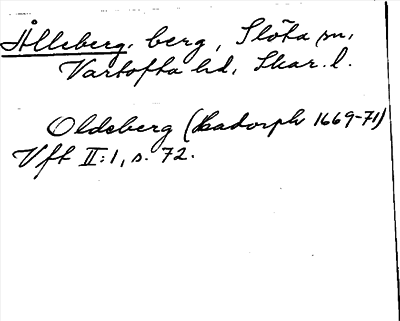 Ålleberg, berg, Slöta sn,
Vartofta hd, Skar. l.
Oldeberg (Hadorph 1669-71)
Vft II:1, s. 72.